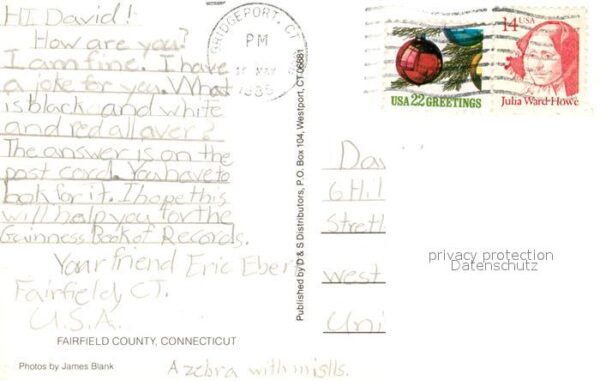 HI David!
How are you?
I am fine. I have
a joke for you. What
is black and white
and red all over?
The answer is on the
post card. You have to
look for it. I hope this
will help you for the
Guinness Book of Records.
Your friend Eric Eber
Fairfield, CT.
U.S.A.
FAIRFIELD COUNTY, CONNECTICUT
Photos by James Blank
A zebra with
Published by D & S Distributors, P.O. Box 104, Westport, CT 06881
BRIDGEPORT, CT
PM
MAY
USA 22 GREETINGS
14 USA
Julia Ward Howe
Da
6 Hil
Stret
West
Uni
privacy protection
Datenschutz